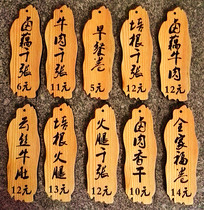 卤藕千张
6元
牛肉千张
11元
早餐卷
5元
培根千张
12元
卤藕牛肉
12元
云丝牛肚
12元
培根火腿
13元
火腿千张
12元
卤肉香干
10元
全家福卷
14元